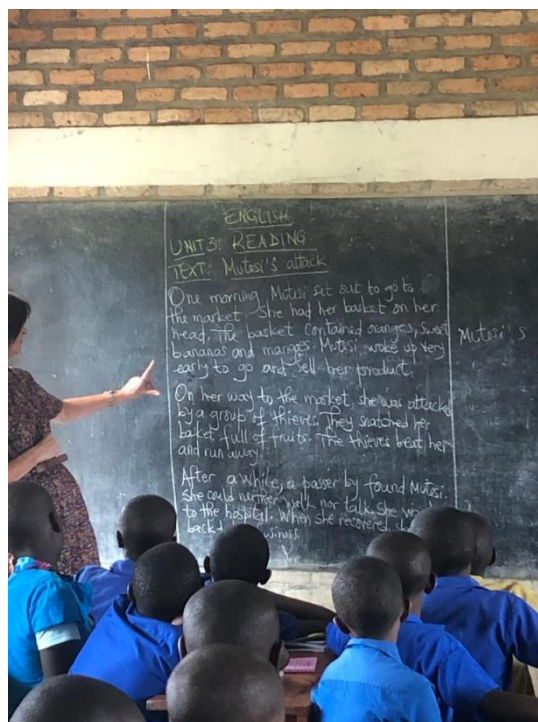 ENGLISH
UNIT 3: READING
TEXT: Mutesi's attack
One morning, Mutesi set out to go to
the market. She had her basket on her
head. The basket contained oranges, sweet
bananas and mangoes. Mutesi woke up very
early to go and sell her product.
On her way to the market, she was attacked
by a group of thieves. They snatched her
basket full of fruits. The thieves beat her
and run away.
After a while, a passer by found Mutesi.
She could neither walk nor talk. She
to the hospital. When she recovered
back
Mutosi's